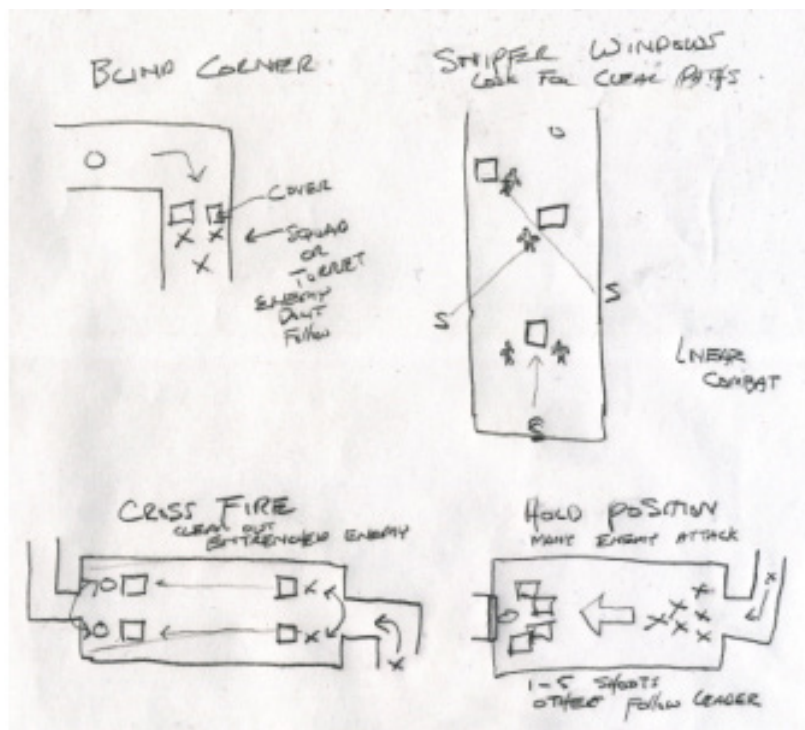 BLIND CORNER
COVER
SQUAD
OR
TURRET
ENEMY
DON'T
FOLLOW
SNIPER WINDOWS
LOOK FOR CLEAR PATHS
S
S
S
LINEAR
COMBAT
CROSS FIRE
CLEAR OUT
ENTRENCHED ENEMY
HOLD POSITION
MANY ENEMY ATTACK
1-5 SHOOTS
OTHERS FOLLOW LEADER